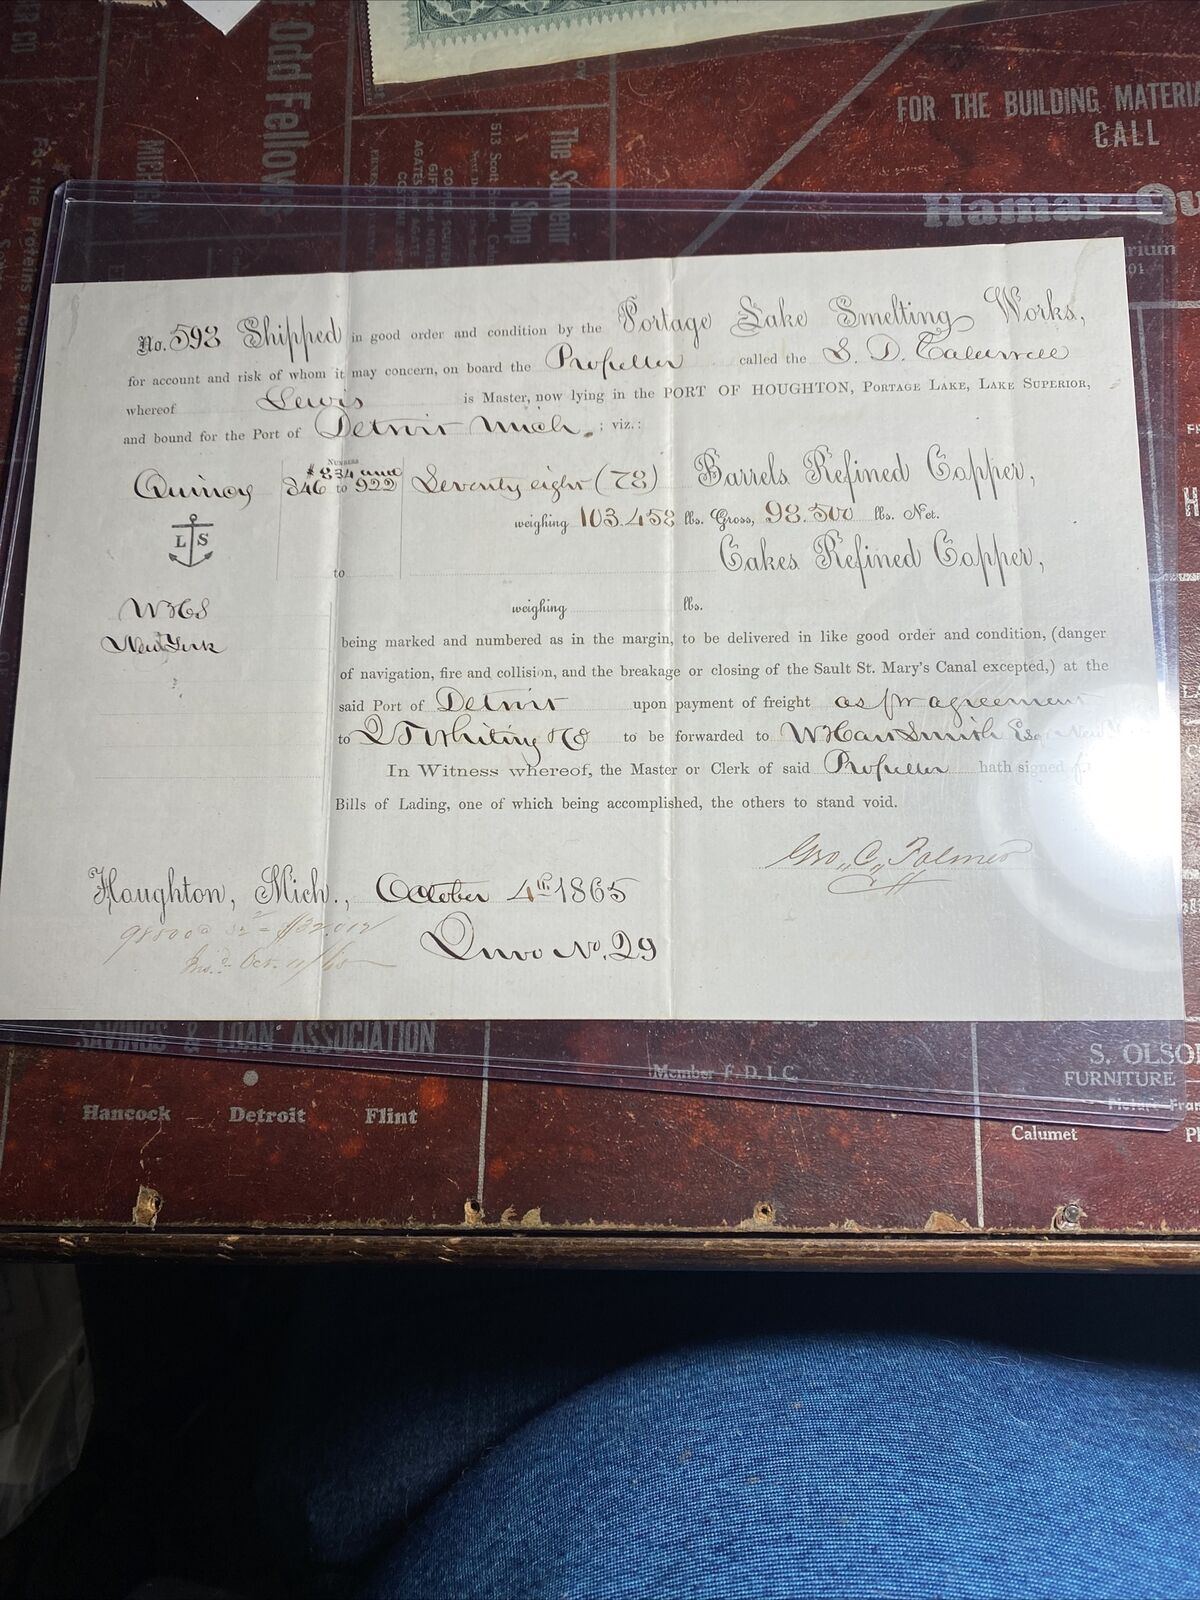 Odd Fellows
MICHIGAN
The Souvenir
Shop
FOR THE BUILDING MATERIA
CALL
No. 593 Shipped in good order and condition by the Portage Lake Smelting Works,
for account and risk of whom it may concern, on board the Propeller called the S. D. Caldwell
whereof Lewis is Master, now lying in the PORT OF HOUGHTON, PORTAGE LAKE, LAKE SUPERIOR,
and bound for the Port of Detroit Mich. ; viz.:
NUMBERS
# 834 and
Quincy 846 to 922 Seventy eight (78) Barrels Refined Copper,
weighing 103.458 lbs. Gross, 98.500 lbs. Net.
L S
to Cakes Refined Copper,
WHS weighing lbs.
New York
being marked and numbered as in the margin, to be delivered in like good order and condition, (danger
of navigation, fire and collision, and the breakage or closing of the Sault St. Mary's Canal excepted,) at the
said Port of Detroit upon payment of freight as pr agreement
to J T Whiting & Co to be forwarded to W Hart Smith Esq New
In Witness whereof, the Master or Clerk of said Propeller hath signed
Bills of Lading, one of which being accomplished, the others to stand void.
Geo. C. Palmer
Houghton, Mich., October 4th 1865
Invo No. 29
SAVINGS & LOAN ASSOCIATION
Hancock Detroit Flint
Member F. D. I. C.
S. OLSO
FURNITURE
Calumet